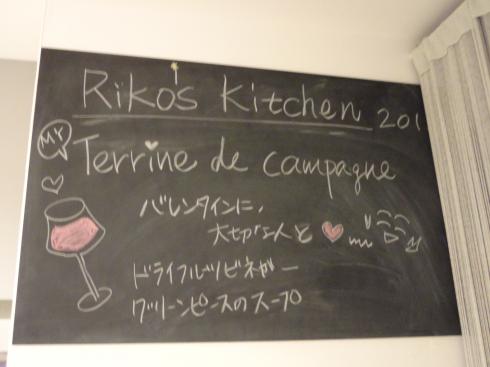 Riko's Kitchen 201
My
Terrine de campagne
バレンタインに、
大切な人と
ドライフルーツビネガー
グリーンピースのスープ